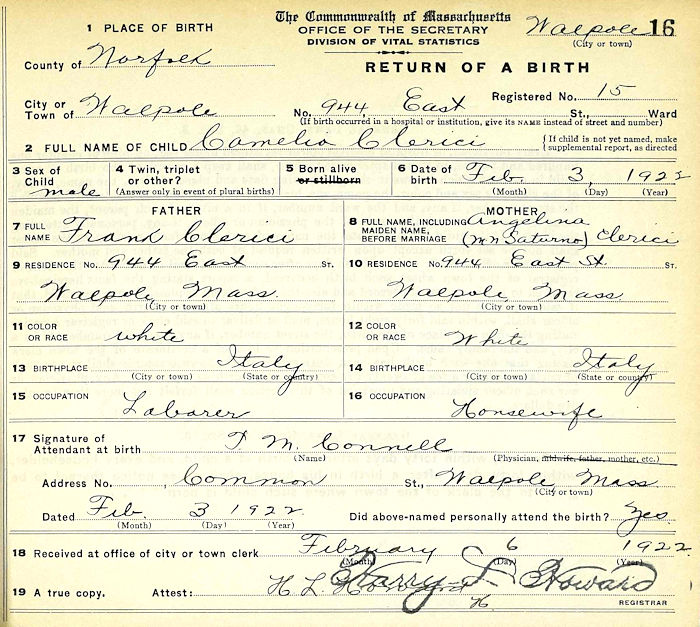 The Commonwealth of Massachusetts
OFFICE OF THE SECRETARY
DIVISION OF VITAL STATISTICS
Walpole 16
(City or town)
1 PLACE OF BIRTH
County of Norfolk
RETURN OF A BIRTH
Registered No. 15
City or Town of Walpole No. 944, East St., Ward
(If birth occurred in a hospital or institution, give its NAME instead of street and number)
2 FULL NAME OF CHILD Camelio Clerici { If child is not yet named, make supplemental report, as directed
3 Sex of Child male
4 Twin, triplet or other?
(Answer only in event of plural births)
5 Born alive or stillborn
6 Date of birth Feb. 3, 1922
(Month) (Day) (Year)
FATHER
7 FULL NAME Frank Clerici
MOTHER
8 FULL NAME, INCLUDING MAIDEN NAME, BEFORE MARRIAGE Angelina (mn Saturno) Clerici
9 RESIDENCE No. 944 East ST.
Walpole, Mass.
(City or town)
10 RESIDENCE No. 944 East St. ST.
Walpole Mass
(City or town)
11 COLOR OR RACE white
12 COLOR OR RACE White
13 BIRTHPLACE Italy
(City or town) (State or country)
14 BIRTHPLACE Italy
(City or town) (State or country)
15 OCCUPATION Laborer
16 OCCUPATION Housewife
17 Signature of Attendant at birth T. M. Connell
(Name) (Physician, midwife, father, mother, etc.)
Address No. , Common St., Walpole Mass.
(City or town)
Dated Feb. 3 1922
(Month) (Day) (Year)
Did above-named personally attend the birth? Yes
18 Received at office of city or town clerk February 6 1922
(Month) (Day) (Year)
19 A true copy. Attest: H L Howard
Harry L. Howard
REGISTRAR